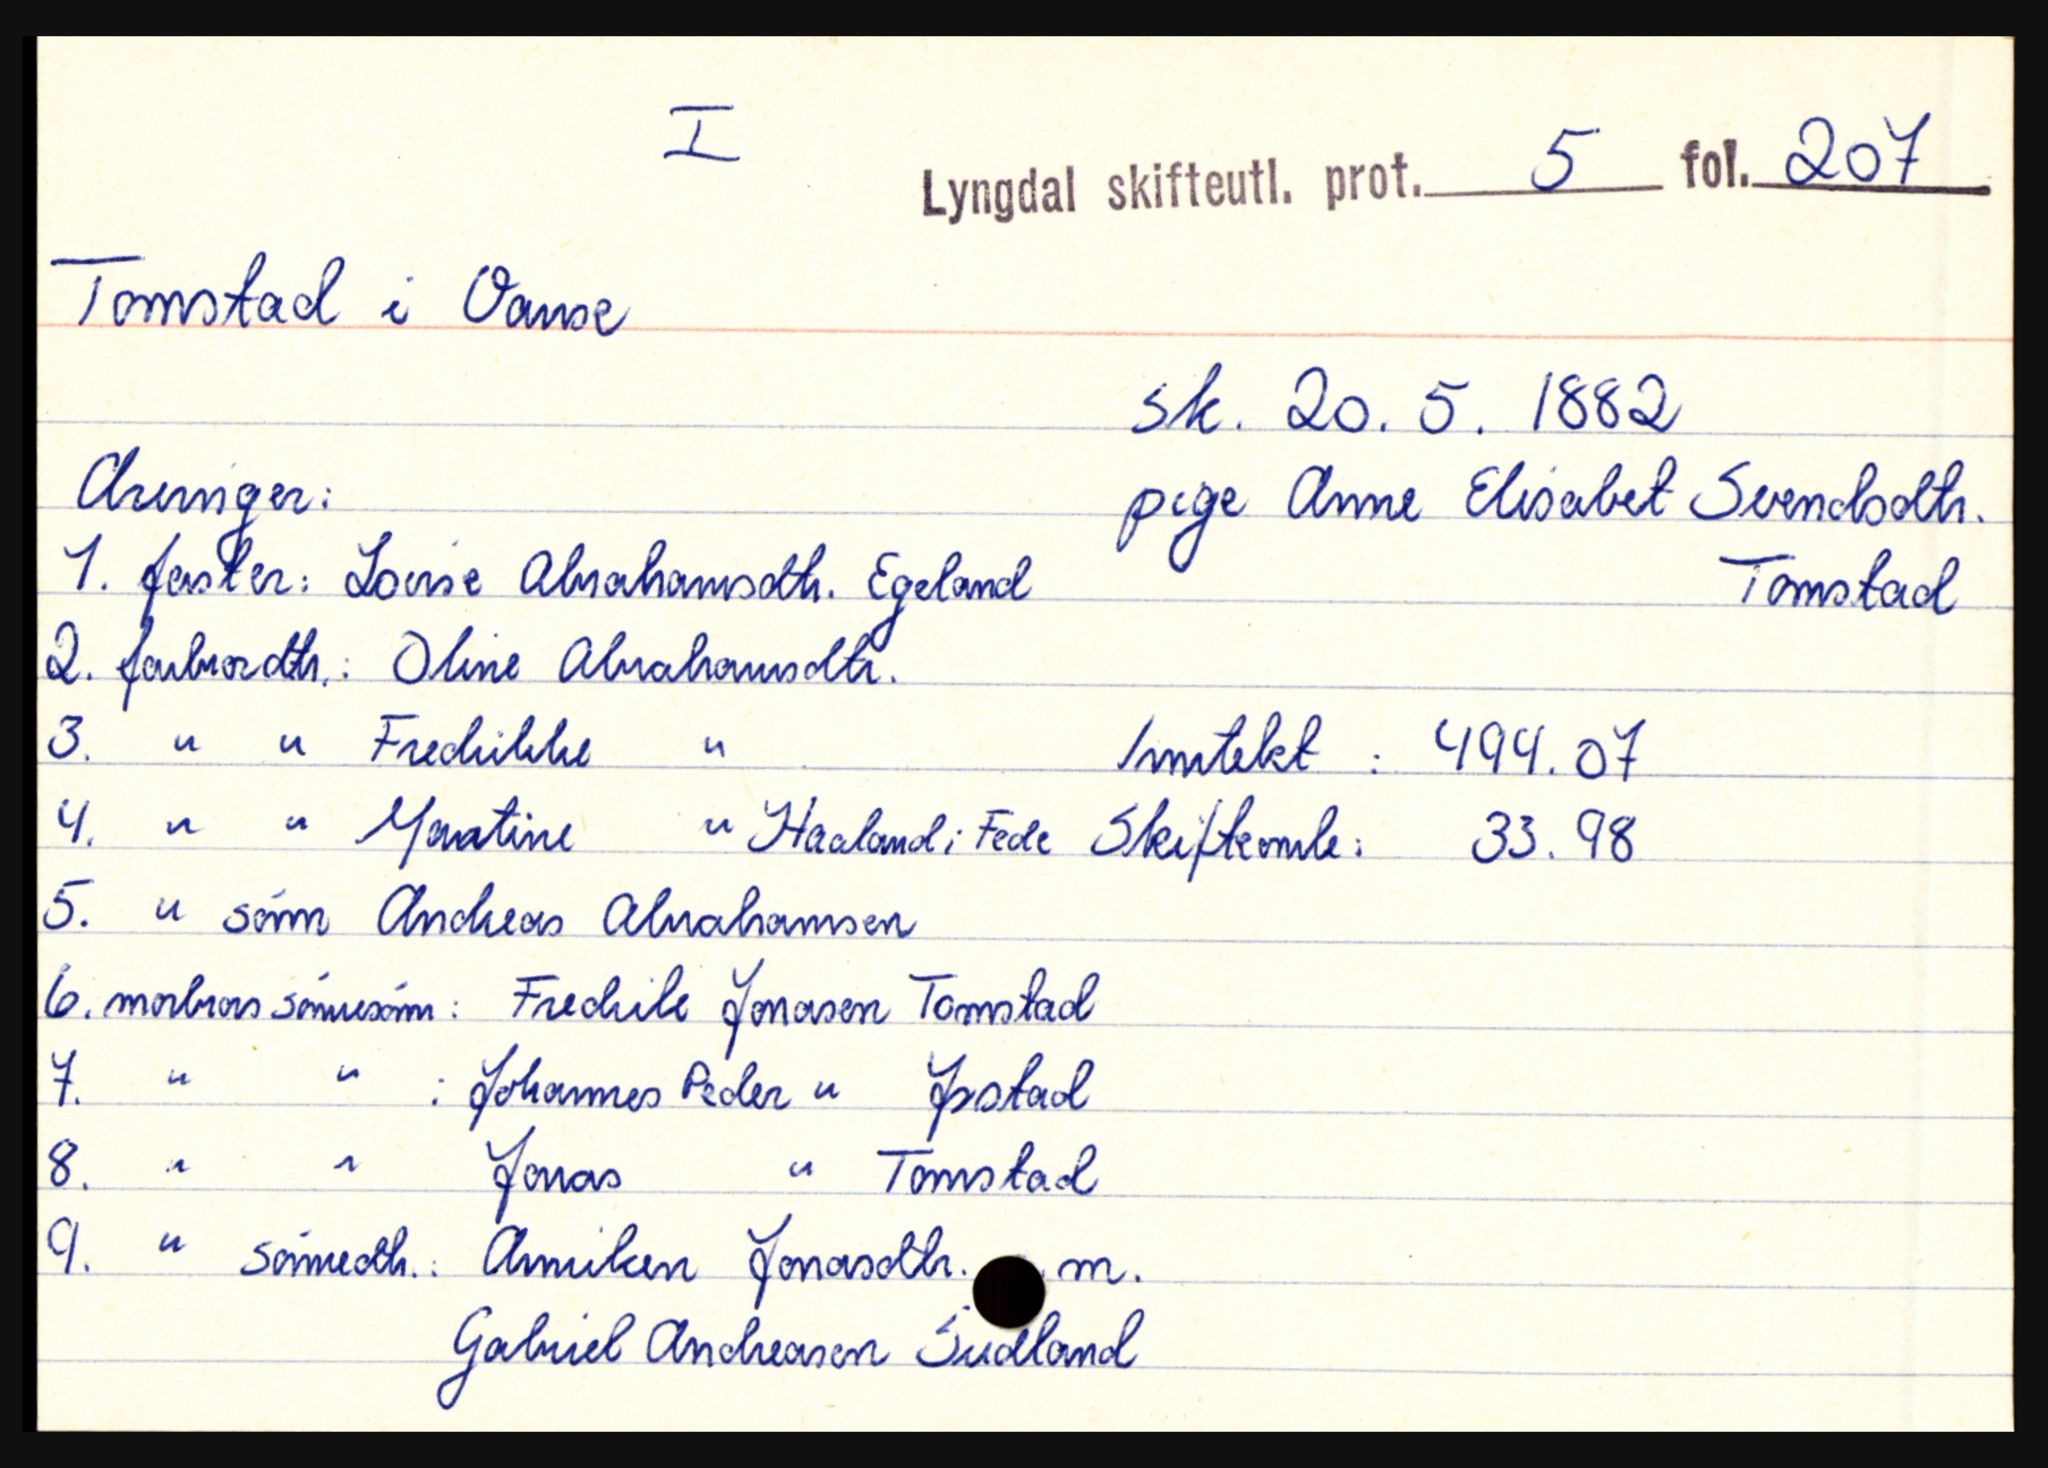 I
Lyngdal skifteutl. prot. 5 fol. 207
Tomstad i Vanse
sk. 20. 5. 1882
Arvinger: pige Anne Elisabet Svendsdtr.
1. faster: Lovise Abrahamsdtr. Egeland Tomstad
2. farbrordtr.: Oline Abrahamsdtr.
3. " " Fredrikke " Inntekt : 494.07
4. " " Martine " Haaland i Fede Skifteomk: 33.98
5. " sønn Andreas Abrahamsen
6. morbrors sønnesønn : Fredrik Jonasen Tomstad
7. " " : Johannes Peder " Jpstad
8. " " Jonas " Tomstad
9. " sønnedtr. : Anniken Jonasdtr. m.
Gabriel Andreasen Sudland